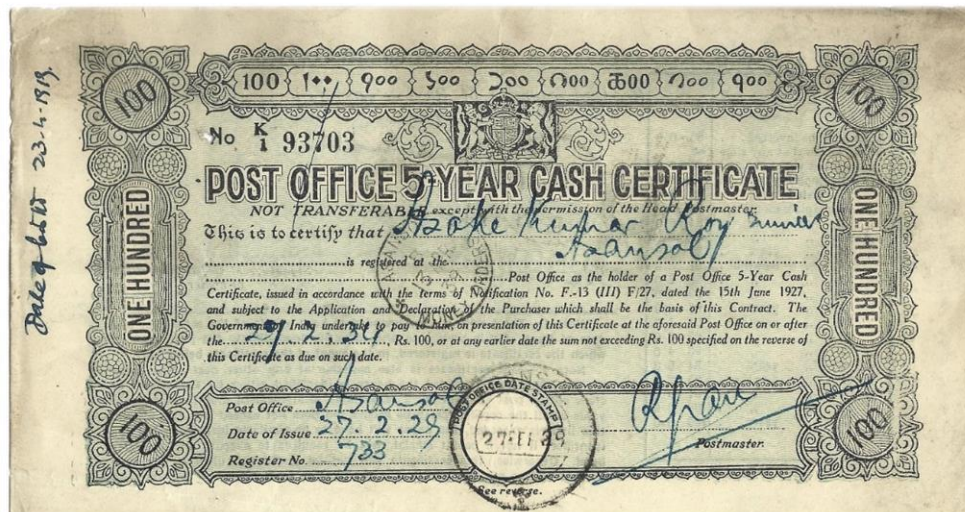 Date of birth 23-4-1919.
100 १०० ১০০ 100
100
100
No. K/1 93703
POST OFFICE 5-YEAR CASH CERTIFICATE
NOT TRANSFERABLE except with the permission of the Head Postmaster
This is to certify that Asoke Kumar Roy minor
Asansol
is registered at the
Post Office as the holder of a Post Office 5-Year Cash
Certificate, issued in accordance with the terms of Notification No. F.-13 (III) F/27, dated the 15th June 1927,
and subject to the Application and Declaration of the Purchaser which shall be the basis of this Contract. The
Government of India undertake to pay to him, on presentation of this Certificate at the aforesaid Post Office on or after
the 27.2.34, Rs. 100, or at any earlier date the sum not exceeding Rs. 100 specified on the reverse of
this Certificate as due on such date.
ONE HUNDRED
ONE HUNDRED
Post Office Asansol
Date of Issue 27.2.29
Register No. 733
POST OFFICE DATE STAMP
27 FE 29
Postmaster.
100
100
See reverse.